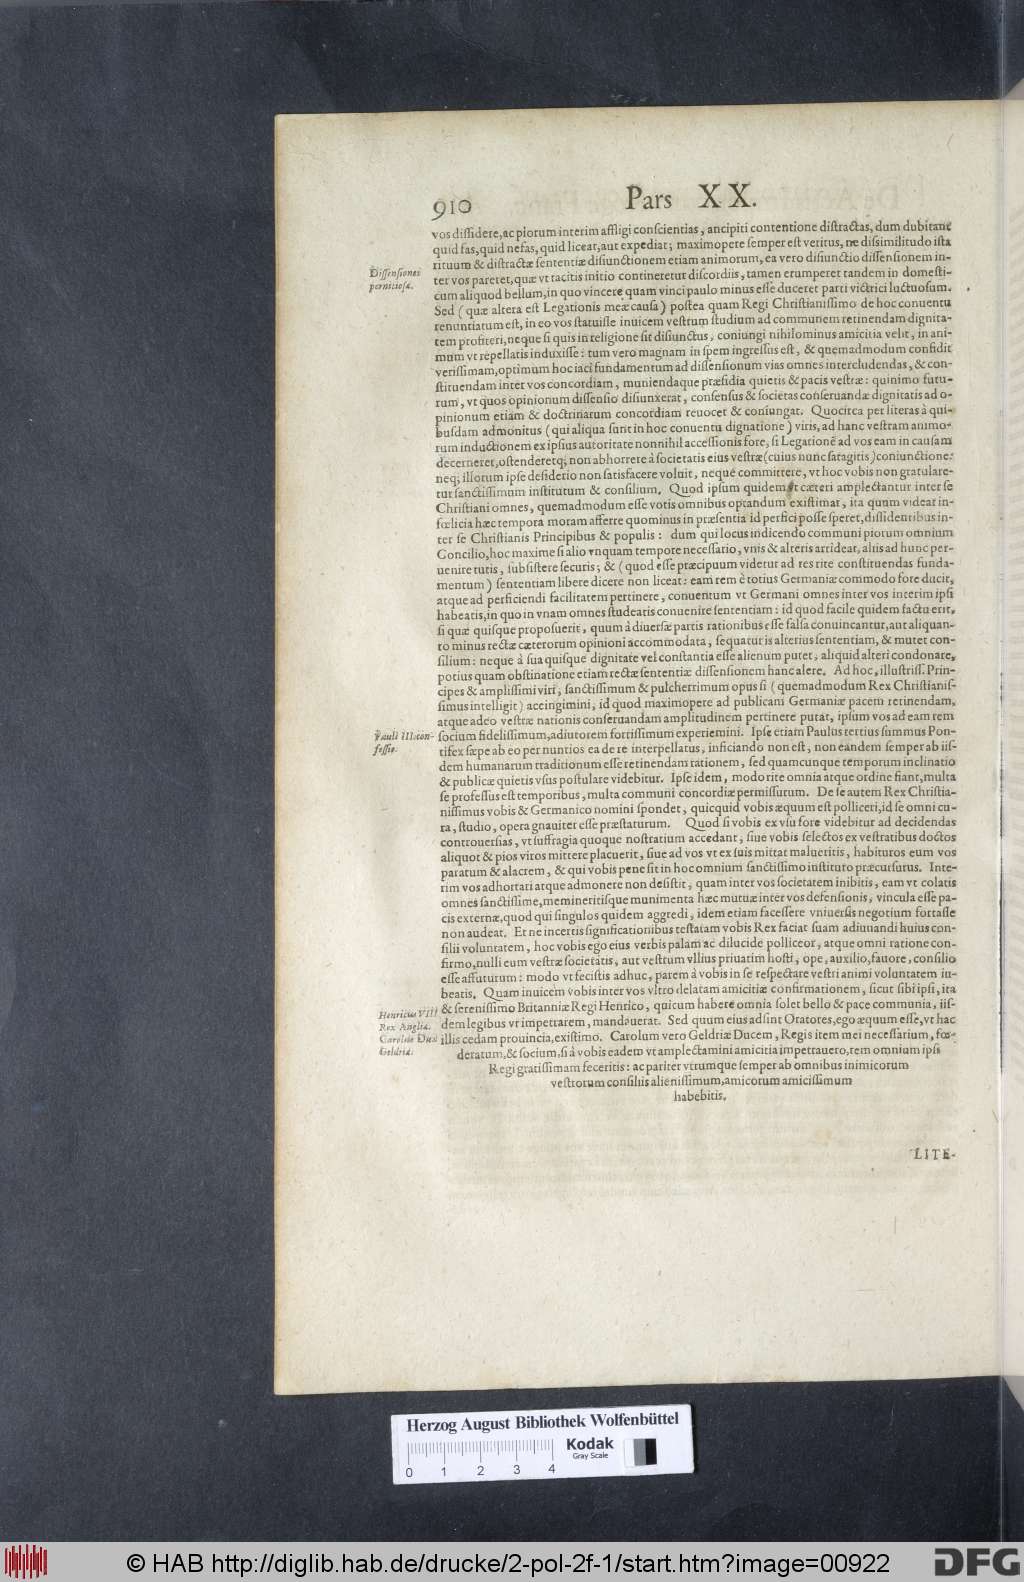 910
Pars XX.
vos diſſidere, ac piorum interim affligi conſcientias, ancipiti contentione diſtractas, dum dubitant
quid fas, quid nefas, quid liceat, aut expediat; maximopere ſemper eſt veritus, ne diſsimilitudo iſta
rituum & diſtractæ ſententiæ diſiunctionem etiam animorum, ea vero diſiunctio diſſenſionem in-
Diſſenſiones
pernicioſa.
ter vos pareret, quæ vt tacitis initio contineretur diſcordiis, tamen erumperet tandem in domeſti-
cum aliquod bellum, in quo vincere quam vinci paulo minus eſſe duceret parti victrici luctuoſum.
Sed (quæ altera eſt Legationis meæ cauſa) poſtea quam Regi Chriſtianiſſimo de hoc conuentu
renuntiatum eſt, in eo vos ſtatuiſſe inuicem veſtrum ſtudium ad communem retinendam dignita-
tem profiteri, neque ſi quis in religione ſit diſiunctus, coniungi nihilominus amicitia velit, in ani-
mum vt repellatis induxiſſe: tum vero magnam in ſpem ingreſſus eſt, & quemadmodum confidit
veriſſimam, optimum hoc iaci fundamentum ad diſſenſionum vias omnes intercludendas, & con-
ſtituendam inter vos concordiam, muniendaque præſidia quietis & pacis veſtræ: quinimo futu-
rum, vt quos opinionum diſſenſio diſiunxerat, conſenſus & ſocietas conſeruandæ dignitatis ad o-
pinionum etiam & doctrinarum concordiam reuocet & coniungat. Quocirca per literas à qui-
buſdam admonitus (qui aliqua ſunt in hoc conuentu dignatione) viris, ad hanc veſtram animo-
rum inductionem ex ipſius autoritate nonnihil acceſſionis fore, ſi Legationẽ ad vos eam in cauſam
decerneret, oſtenderetq; non abhorrere à ſocietatis eius veſtræ (cuius nunc ſatagitis) coniunctione:
neq; illorum ipſe deſiderio non ſatisfacere voluit, neque committere, vt hoc vobis non gratulare-
tur ſanctiſſimum inſtitutum & conſilium. Quod ipſum quidem vt cæteri amplectantur inter ſe
Chriſtiani omnes, quemadmodum eſſe votis omnibus optandum exiſtimat, ita quum videat in-
fœlicia hæc tempora moram afferre quominus in præſentia id perfici poſſe ſperet, diſſidentibus in-
ter ſe Chriſtianis Principibus & populis: dum qui locus indicendo communi piorum omnium
Concilio, hoc maxime ſi alio vnquam tempore neceſſario, vnis & alteris arrideat, aliis ad hunc per-
uenire tutis, ſubſiſtere ſecuris; & (quod eſſe præcipuum videtur ad res rite conſtituendas funda-
mentum) ſententiam libere dicere non liceat: eam rem è totius Germaniæ commodo fore ducit,
atque ad perficiendi facilitatem pertinere, conuentum vt Germani omnes inter vos interim ipſi
habeatis, in quo in vnam omnes ſtudeatis conuenire ſententiam: id quod facile quidem factu erit,
ſi quæ quiſque propoſuerit, quum à diuerſæ partis rationibus eſſe falſa conuincantur, aut aliquan-
to minus rectæ cæterorum opinioni accommodata, ſequatur is alterius ſententiam, & mutet con-
ſilium: neque à ſua quiſque dignitate vel conſtantia eſſe alienum putet, aliquid alteri condonare,
potius quam obſtinatione etiam rectæ ſententiæ diſſenſionem hanc alere. Ad hoc, illuſtriſſ. Prin-
cipes & ampliſſimi viri, ſanctiſſimum & pulcherrimum opus ſi (quemadmodum Rex Chriſtianiſ-
ſimus intelligit) accingimini, id quod maximopere ad publicani Germaniæ pacem retinendam,
atque adeo veſtræ nationis conſeruandam amplitudinem pertinere putat, ipſum vos ad eam rem
Pauli III. con-
feſſio.
ſocium fideliſſimum, adiutorem fortiſſimum experiemini. Ipſe etiam Paulus tertius ſummus Pon-
tifex ſæpe ab eo per nuntios ea de re interpellatus, inficiando non eſt, non eandem ſemper ab iiſ-
dem humanarum traditionum eſſe retinendam rationem, ſed quamcunque temporum inclinatio
& publicæ quietis vſus poſtulare videbitur. Ipſe idem, modo rite omnia atque ordine fiant, multa
ſe profeſſus eſt temporibus, multa communi concordiæ permiſſurum. De ſe autem Rex Chriſtia-
niſſimus vobis & Germanico nomini ſpondet, quicquid vobis æquum eſt polliceri, id ſe omni cu-
ra, ſtudio, opera gnauiter eſſe præſtaturum. Quod ſi vobis ex vſu fore videbitur ad decidendas
controuerſias, vt ſuffragia quoque noſtratium accedant, ſiue vobis ſelectos ex veſtratibus doctos
aliquot & pios viros mittere placuerit, ſiue ad vos vt ex ſuis mittat malueritis, habituros eum vos
paratum & alacrem, & qui vobis pene ſit in hoc omnium ſanctiſſimo inſtituto præcurſurus. Inte-
rim vos adhortari atque admonere non deſiſtit, quam inter vos ſocietatem inibitis, eam vt colatis
omnes ſanctiſſime, memineritiſque munimenta hæc mutuæ inter vos defenſionis, vincula eſſe pa-
cis externæ, quod qui ſingulos quidem aggredi, idem etiam faceſſere vniuerſis negotium fortaſſe
non audeat. Et ne incertis ſignificationibus teſtatam vobis Rex faciat ſuam adiuuandi huius con-
ſilii voluntatem, hoc vobis ego eius verbis palam ac dilucide polliceor, atque omni ratione con-
firmo, nulli eum veſtræ ſocietatis, aut veſtrum vllius priuatim hoſti, ope, auxilio, fauore, conſilio
eſſe affuturum: modo vt feciſtis adhuc, parem à vobis in ſe reſpectare veſtri animi voluntatem iu-
beatis. Quam inuicem vobis inter vos vltro delatam amicitiæ confirmationem, ſicut ſibi ipſi, ita
Henricus VIII
Rex Angliæ.
Carolus Dux
Geldriæ.
& ſereniſſimo Britanniæ Regi Henrico, quicum habere omnia ſolet bello & pace communia, iiſ-
dem legibus vt impetrarem, mandauerat. Sed quum eius adſint Oratores, ego æquum eſſe, vt hac
illis cedam prouincia, exiſtimo. Carolum vero Geldriæ Ducem, Regis item mei neceſſarium, fœ-
deratum, & ſocium, ſi à vobis eadem vt amplectamini amicitia impetrauero, rem omnium ipſi
Regi gratiſſimam feceritis: ac pariter vtrumque ſemper ab omnibus inimicorum
veſtrorum conſiliis alieniſſimum, amicorum amiciſſimum
habebitis.
LITE-
Herzog August Bibliothek Wolfenbüttel
Kodak
Gray Scale
0 1 2 3 4
© HAB http://diglib.hab.de/drucke/2-pol-2f-1/start.htm?image=00922
DFG